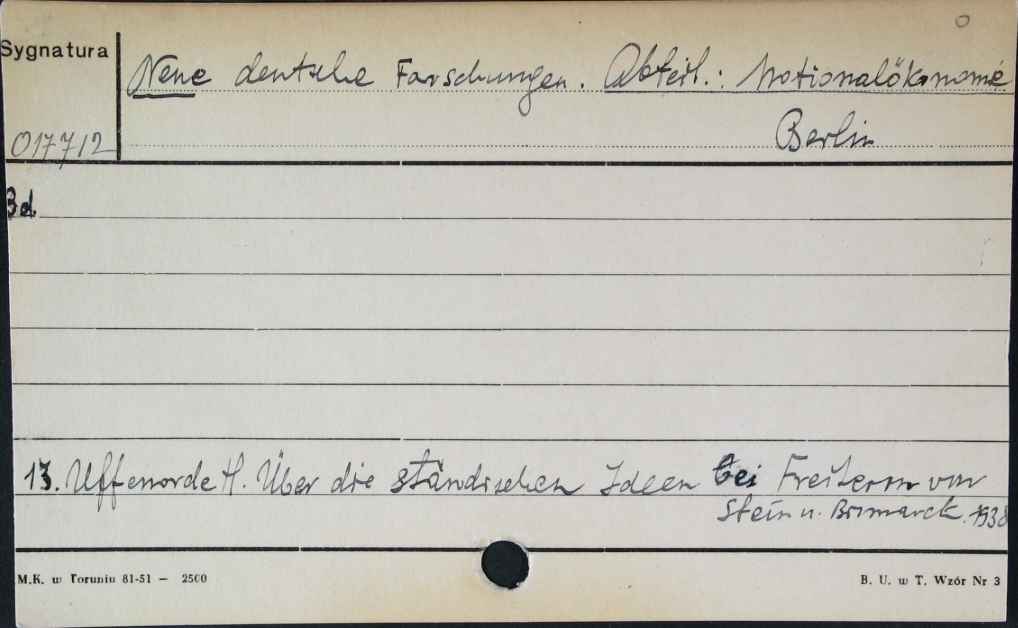 O
Sygnatura
Neue deutsche Forschungen. Abteil.: Nationalökonomie
Berlin
017712
Bd
13. Uffenorde H. Über die ständischen Ideen bei Freiherrn von
Stein u. Bismarck. 1938
M.K. w Toruniu 81-51 — 2500
B. U. w T. Wzór Nr 3